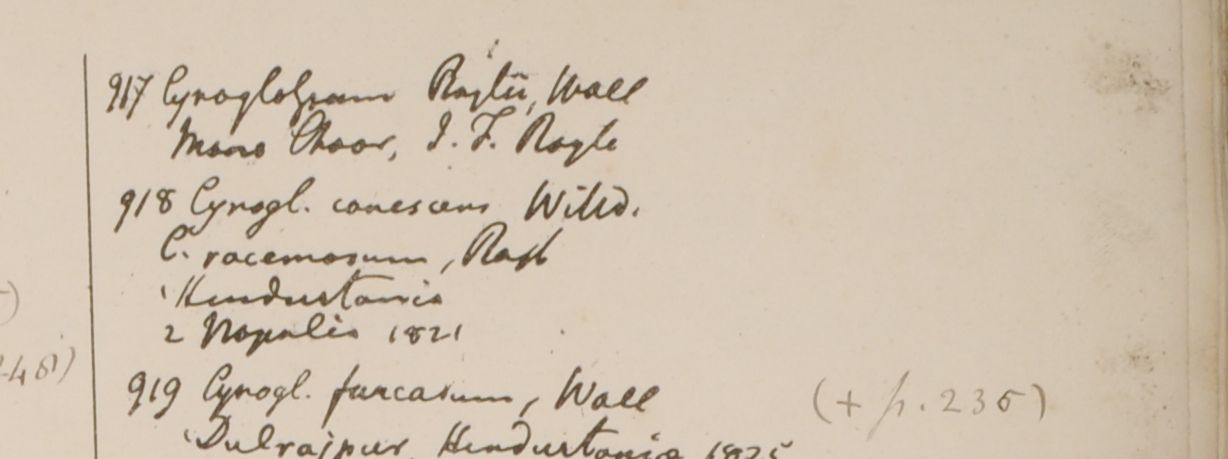 917 Cynoglossum Roylii, Wall
Mono Choor, I. F. Royle
918 Cynogl. canescens Willd.
C. racemosum, Roxb
1 Hindustania
2 Napalia 1821
919 Cynogl. furcatum, Wall (+ p. 235)
Hindustania 1825